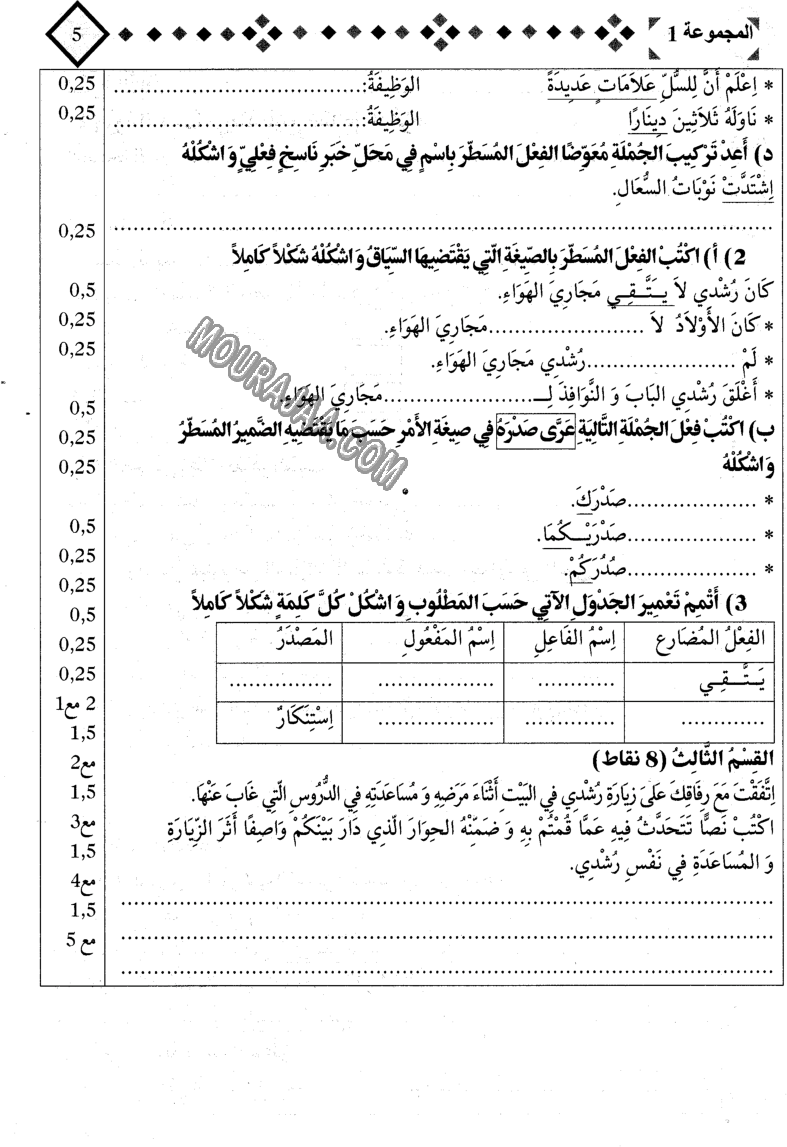 المجموعة 1
5
* اِعْلَمْ أَنَّ لِلسُّلِّ عَلاَمَاتٍ عَدِيدَةً الوَظِيفَةُ:....................................... 0,25
* نَاوَلَهُ ثَلاَثِينَ دِينَارًا الوَظِيفَةُ:....................................... 0,25
د) أَعِدْ تَرْكِيبَ الجُمْلَةِ مُعَوِّضًا الفِعْلَ المُسَطَّرَ بِاسْمٍ فِي مَحَلِّ خَبَرِ نَاسِخٍ فِعْلِيٍّ وَ اشْكُلْهُ
اِشْتَدَّتْ نَوْبَاتُ السُّعَالِ.
....................................................................................... 0,25
2) أ) اكْتُبْ الفِعْلَ المُسَطَّرَ بِالصِّيغَةِ الَّتِي يَقْتَضِيهَا السِّيَاقُ وَ اشْكُلْهُ شَكْلاً كَامِلاً
كَانَ رُشْدِي لاَ يَــتَّــقِــي مَجَارِيَ الهَوَاءِ. 0,5
* كَانَ الأَوْلاَدُ لاَ .........................مَجَارِيَ الهَوَاءِ. 0,25
* لَمْ .......................رُشْدِي مَجَارِيَ الهَوَاءِ. 0,25
* أَغْلَقَ رُشْدِي البَابَ وَ النَّوَافِذَ لِــ........................مَجَارِيَ الهَوَاءِ. 0,5
ب) اكْتُبْ فِعْلَ الجُمْلَةِ التَّالِيَةِ عَرَّى صَدْرَهُ فِي صِيغَةِ الأَمْرِ حَسَبَ مَا يَقْتَضِيهِ الضَّمِيرُ المُسَطَّرُ 0,25
وَ اشْكُلْهُ 0,25
* ....................صَدْرَكَ.
* ....................صَدْرَيْــكُمَا. 0,5
* ....................صُدُرَكُمْ. 0,25
0,25
3) أَتْمِمْ تَعْمِيرَ الجَدْوَلِ الآتِي حَسَبَ المَطْلُوبِ وَ اشْكُلْ كُلَّ كَلِمَةٍ شَكْلاً كَامِلاً 0,5
الفِعْلُ المُضَارِع اِسْمُ الفَاعِلِ اِسْمُ المَفْعُولِ المَصْدَرُ 0,25
يَــتَّــقِــي ............ .................. ................ 0,25
............. .............. .................. اِسْتِنْكَارٌ 2 مع1
1,5
القِسْمُ الثَّالِثُ (8 نقاط) مع2
اِتَّفَقْتَ مَعَ رِفَاقِكَ عَلَى زِيَارَةِ رُشْدِي فِي البَيْتِ أَثْنَاءَ مَرَضِهِ وَ مُسَاعَدَتِهِ فِي الدُّرُوسِ الَّتِي غَابَ عَنْهَا. 1,5
اكْتُبْ نَصًّا تَتَحَدَّثُ فِيهِ عَمَّا قُمْتُمْ بِهِ وَ ضَمِّنْهُ الحِوَارَ الَّذِي دَارَ بَيْنَكُمْ وَاصِفًا أَثَرَ الزِّيَارَةِ مع3
وَ المُسَاعَدَةِ فِي نَفْسِ رُشْدِي. 1,5
مع4
....................................................................................... 1,5
....................................................................................... مع 5
.......................................................................................
MOURAJAA.COM